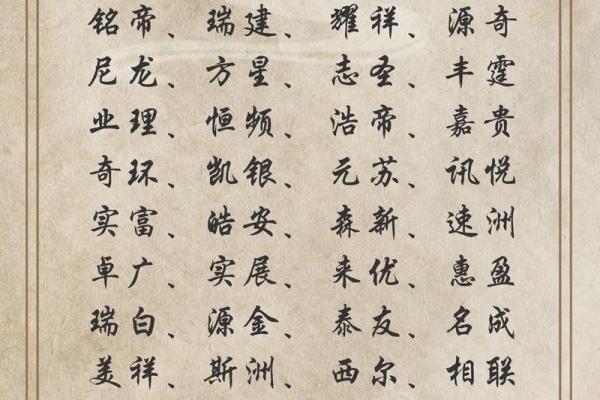 铭帝、瑞建、耀祥、源奇
尼龙、方星、志圣、丰霆
业理、恒频、浩帝、嘉贵
奇环、凯银、元苏、讯悦
实富、皓安、森新、速洲
卓广、实展、来优、惠盈
瑞白、源金、泰友、名成
美祥、斯洲、西尔、相联